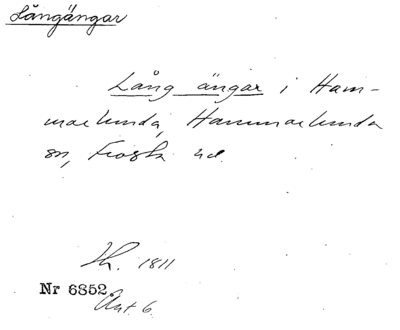 Långängar
Lång ängar i Ham-
marlunda, Hammarlunda
sn, Frosta hd.
Lh. 1811
Nr 6852.
Ant. 6.